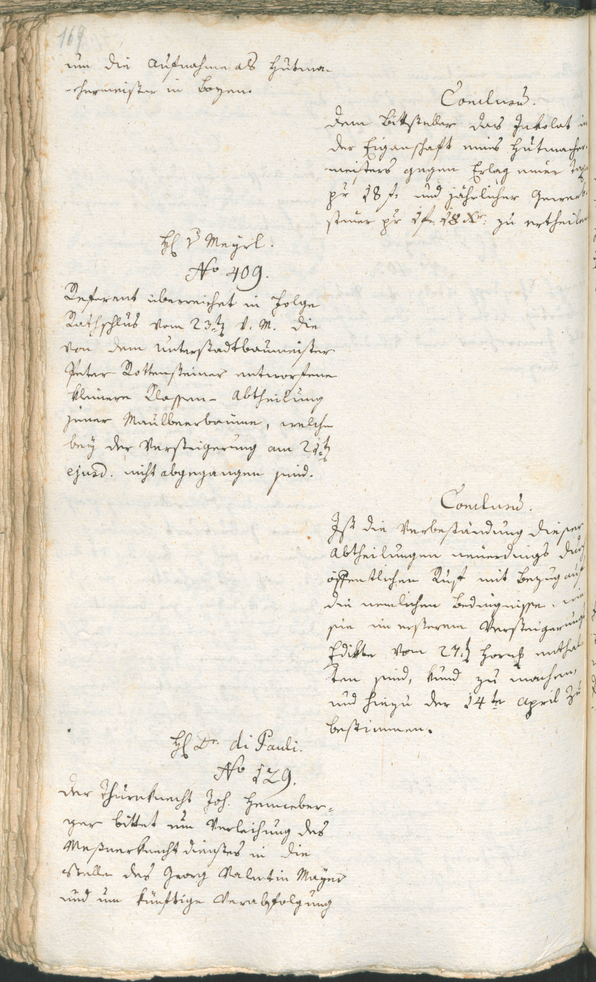 169
um die Aufnahme als Hutma-
chermeister in Bozen.
Conclusum.
dem Bittsteller das Inkolat in
der Eigenschaft eines Hutmacher-
meisters gegen Erlag einer Tax
pr 18 f. und jährlicher Gewerb-
steuer pr 1 f. 18 xr. zu ertheilen
H. v. Meyrl.
No 409.
Referent überreichet in Folge
Rathschlus vom 23ten d. M. die
von dem Unterstadtbaumeister
Peter Rottensteiner entworfene
kleinere Klassen-Abtheilung
jener Maulbeerbäume, welche
bey der Versteigerung am 21ten
ejusd. nicht abgegangen sind.
Conclusum.
Ist die Verbeständung dieser
Abtheilungen neuerdings durch
öffentlichen Ruf mit Bezug auf
die nemlichen Bedingnisse, wie
sie im ersteren Versteigerungs
Edikte vom 27ten Hornung enthal
ten sind, kund zu machen,
und hiezu der 14te April zu
bestimmen.
H. Dr. di Pauli.
No 129.
Der Thurnknecht Joh. Henneber-
ger bittet um Verleihung des
Meßnerknechtdienstes in die
Stelle des Georg Valentin Mayer
und um künftige Verabfolgung